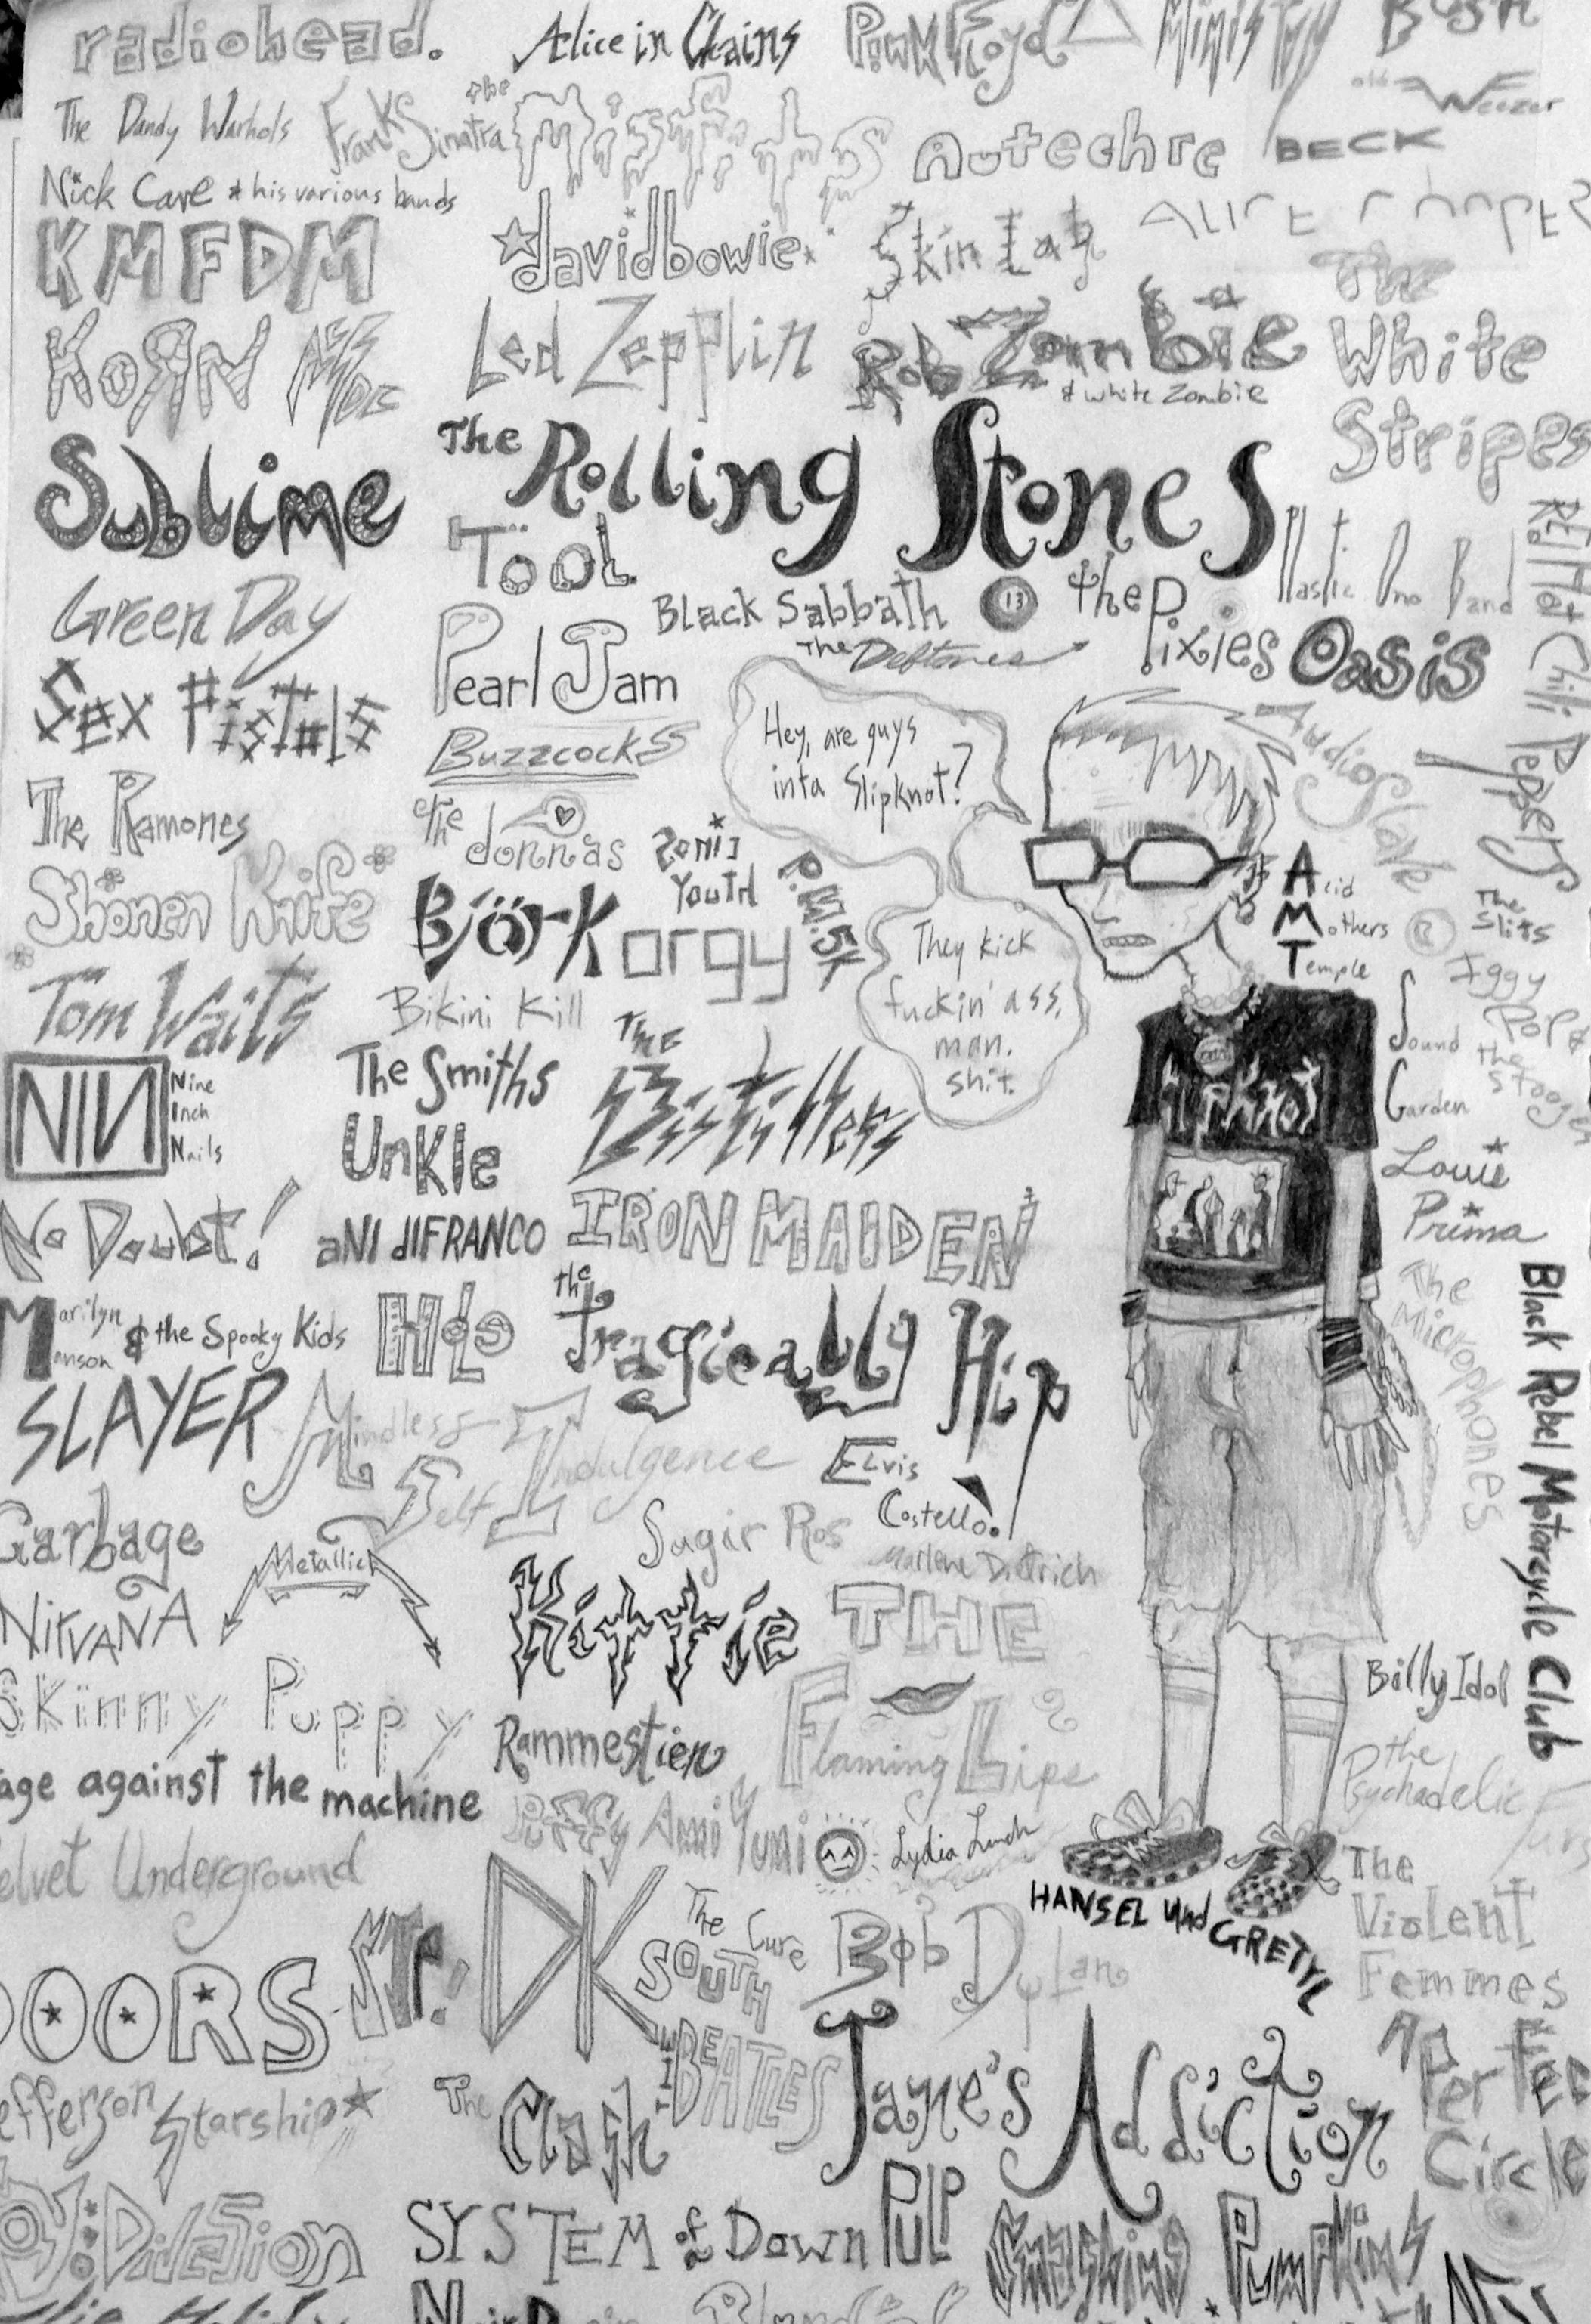 radiohead.
Alice in Chains
Pink Floyd
Ministry
Bush
The Dandy Warhols
Frank Sinatra
the Misfits
Autechre
old Weezer
BECK
Nick Cave & his various bands
KMFDM
davidbowie
Skinlab
ALICE
Korn
Led Zepplin
Rob Zombie
& white Zombie
The
White
Stripes
Sublime
The Rolling Stones
Tool
Plastic Ono Band
Red Hot Chili Peppers
Green Day
Black Sabbath
13
the Pixies
Oasis
The Deftones
Pearl Jam
Sex Pistols
Buzzcocks
Hey, are guys
inta Slipknot?
Audioslave
The Ramones
the donnas
Sonic
Youth
P.M.5K
Shonen Knife
Björk
orgy
They kick
fuckin' ass,
man.
shit.
Acid
Mothers
Temple
The
Slits
Iggy
Pop &
the
Stooges
Tom Waits
Bikini Kill
Sound
Garden
NIN
Nine
Inch
Nails
The Smiths
The Distillers
Unkle
Louie
Prima
No Doubt!
aNI dIFRANCO
IRON MAIDEN
Marilyn
Manson
& the Spooky Kids
Hole
the Tragically Hip
The
Microphones
Black Rebel Motorcycle Club
SLAYER
Mindless
Self Indulgence
Elvis
Costello
Garbage
Metallica
Sugir Ros
Marlene Dietrich
NIRVANA
Kittie
THE
Flaming Lips
Skinny Puppy
Rammestien
Billy Idol
age against the machine
Puffy Ami Yumi
Lydia Lunch
the
Psychadelic
Furs
elvet Underground
HANSEL und GRETYL
The
Violent
Femmes
DOORS
STP!
DK
The Cure
SOUTH
Bob Dylan
efferson Starship
The Clash
THE BEATLES
Jane's Addiction
A Perfec
Circle
oy Division
SYSTEM of a Down
PULP
Smashing Pumpkins